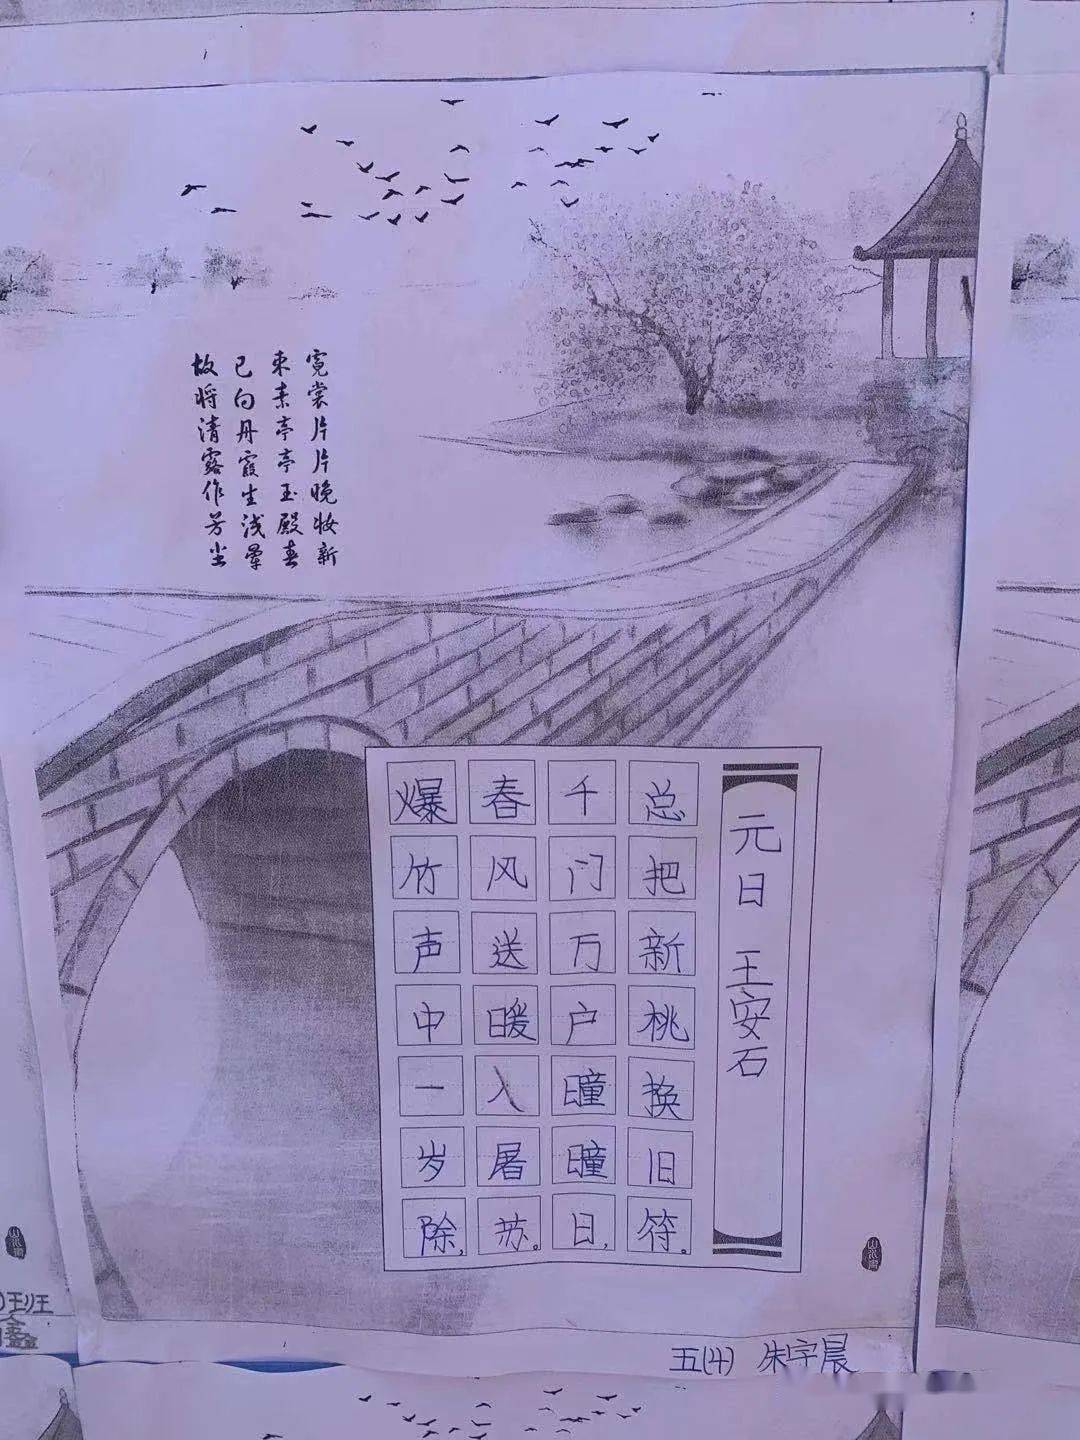 霓裳片片晚妆新
束素亭亭玉殿春
已向丹霞生浅晕
故将清露作芳尘
元日 王安石
爆竹声中一岁除，
春风送暖入屠苏。
千门万户瞳瞳日，
总把新桃换旧符。
五(4) 朱宇晨
班
鑫